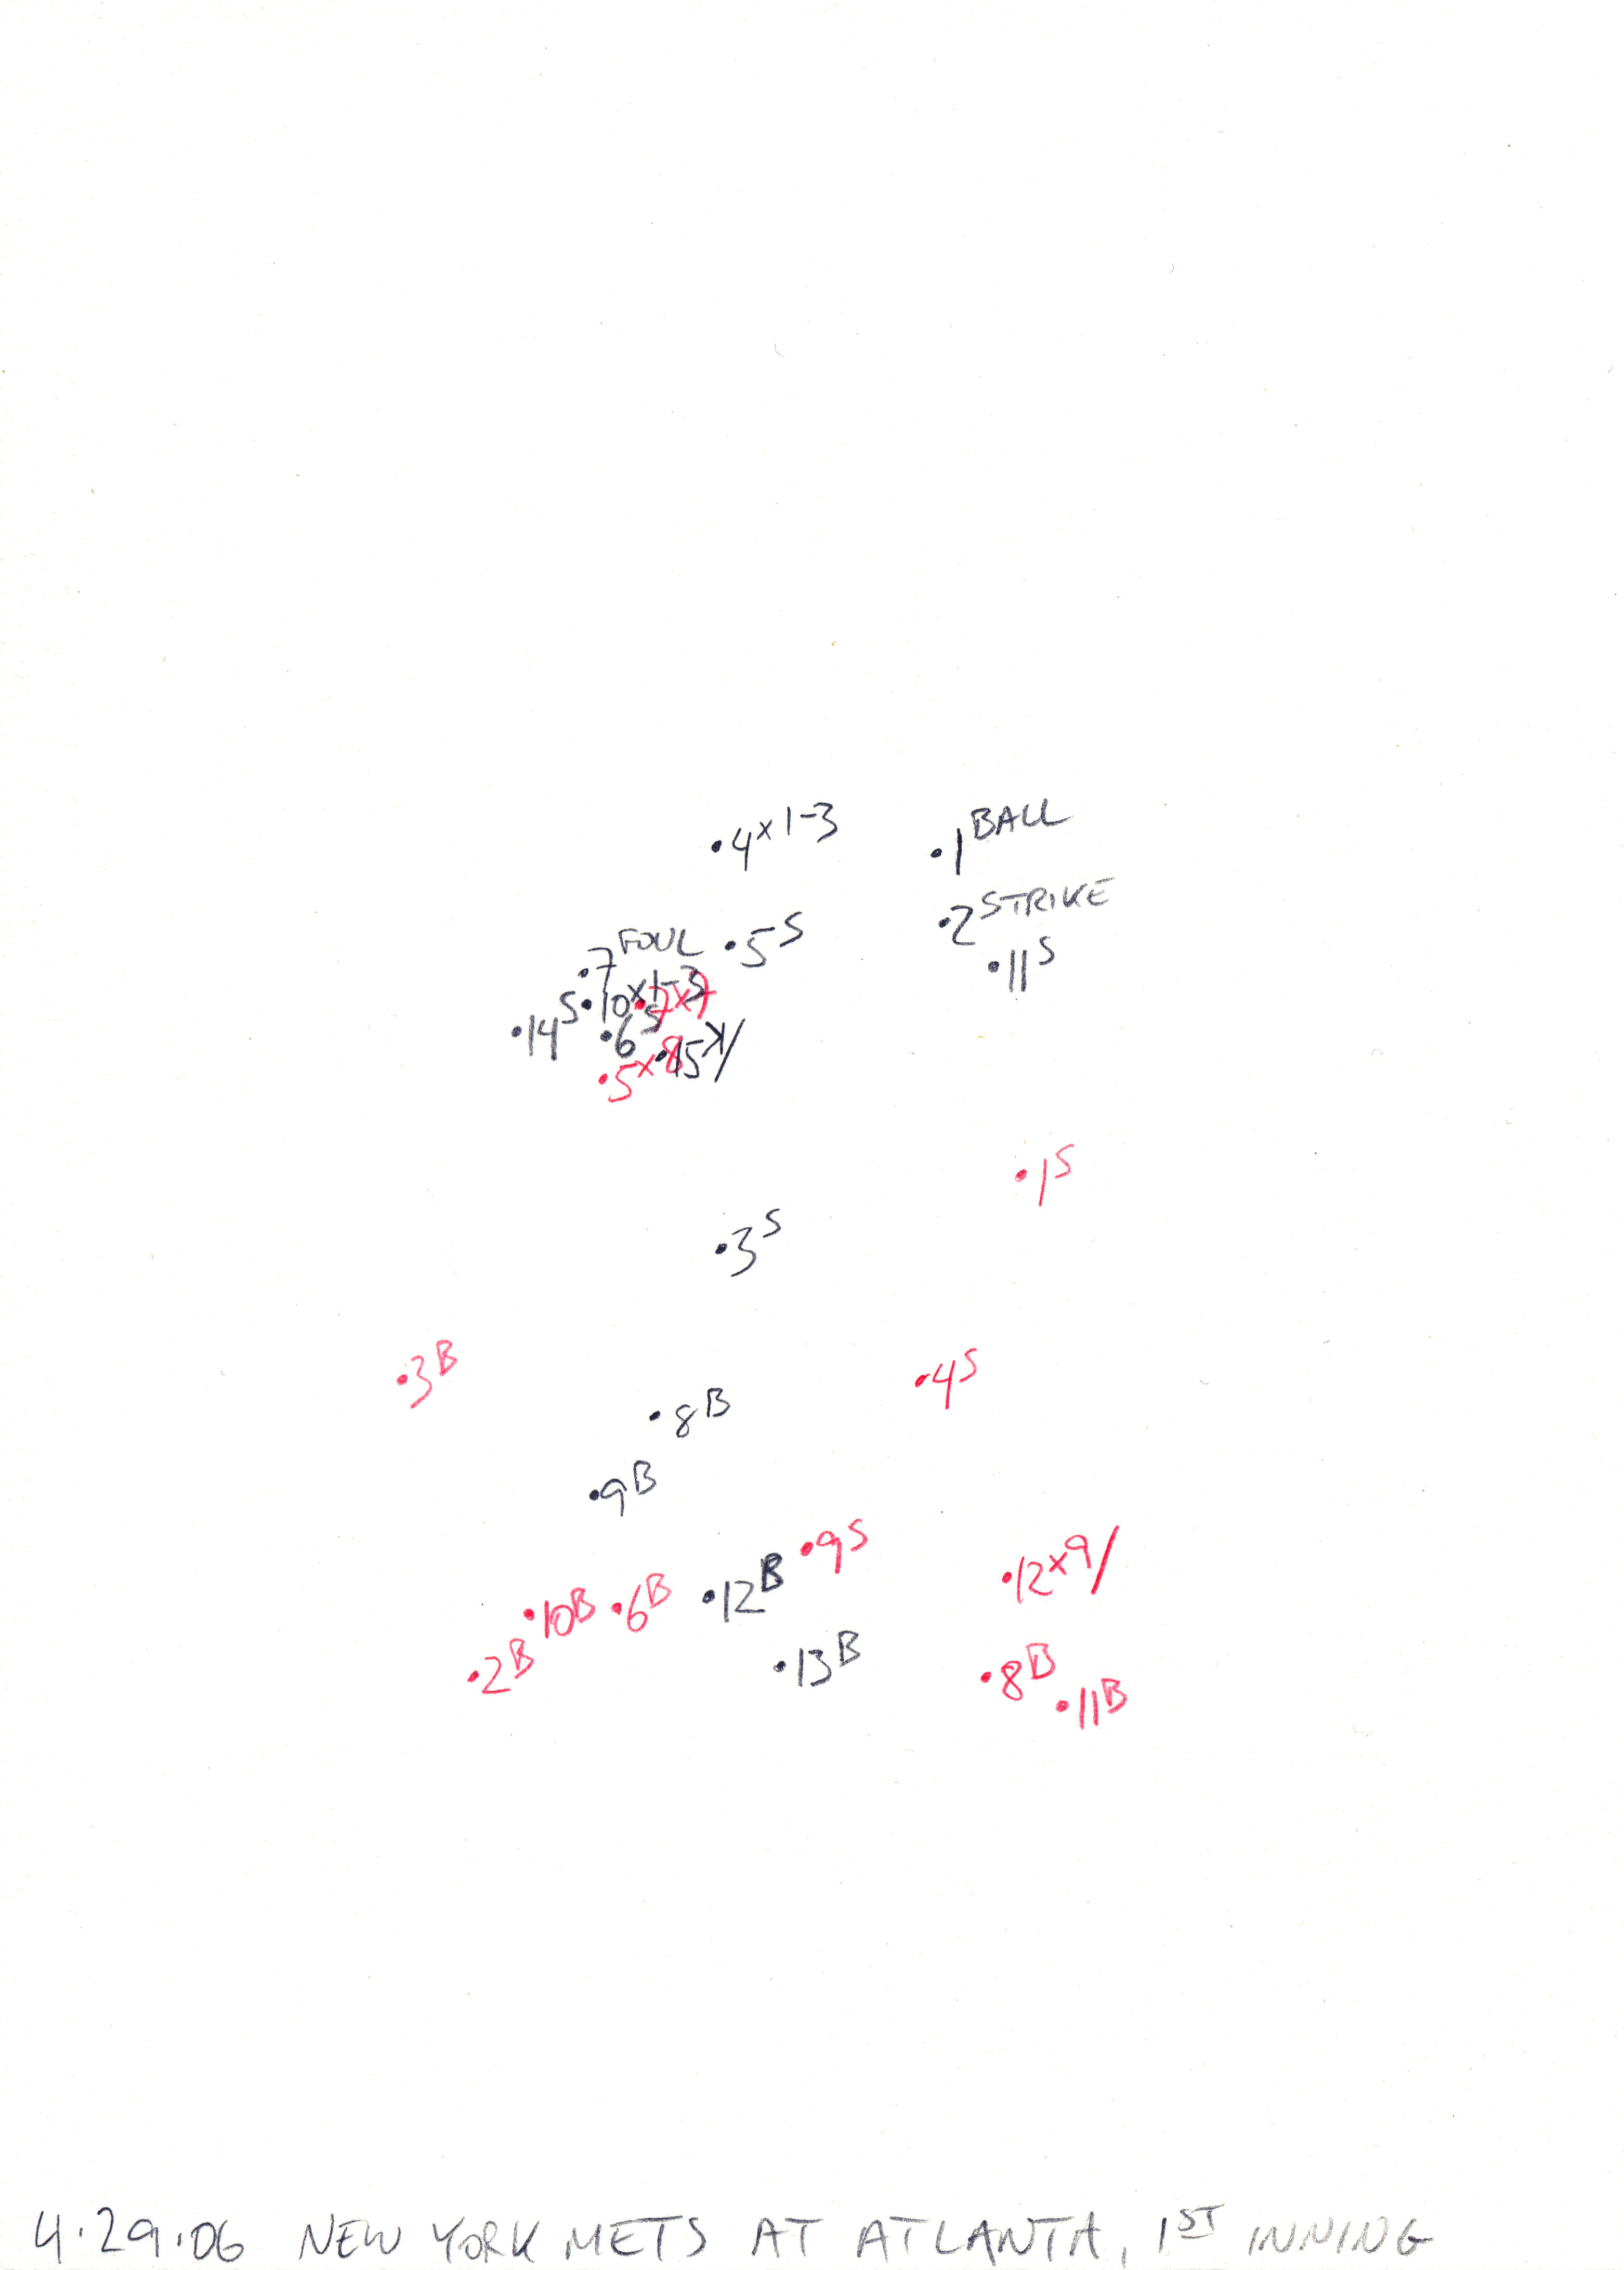 .4 x 1-3
.1 BALL
.2 STRIKE
.7 FOUL
.5 S
.11 S
.10 x 1-3
.7 x 7
.14 S
.6 S
.15 K/
.5 x 8
.1 S
.3 S
.3 B
.4 S
.8 B
.9 B
.9 S
.12 x 9/
.12 B
.10 B
.6 B
.2 B
.13 B
.8 B
.11 B
4.29.06 NEW YORK METS AT ATLANTA, 1ST INNING